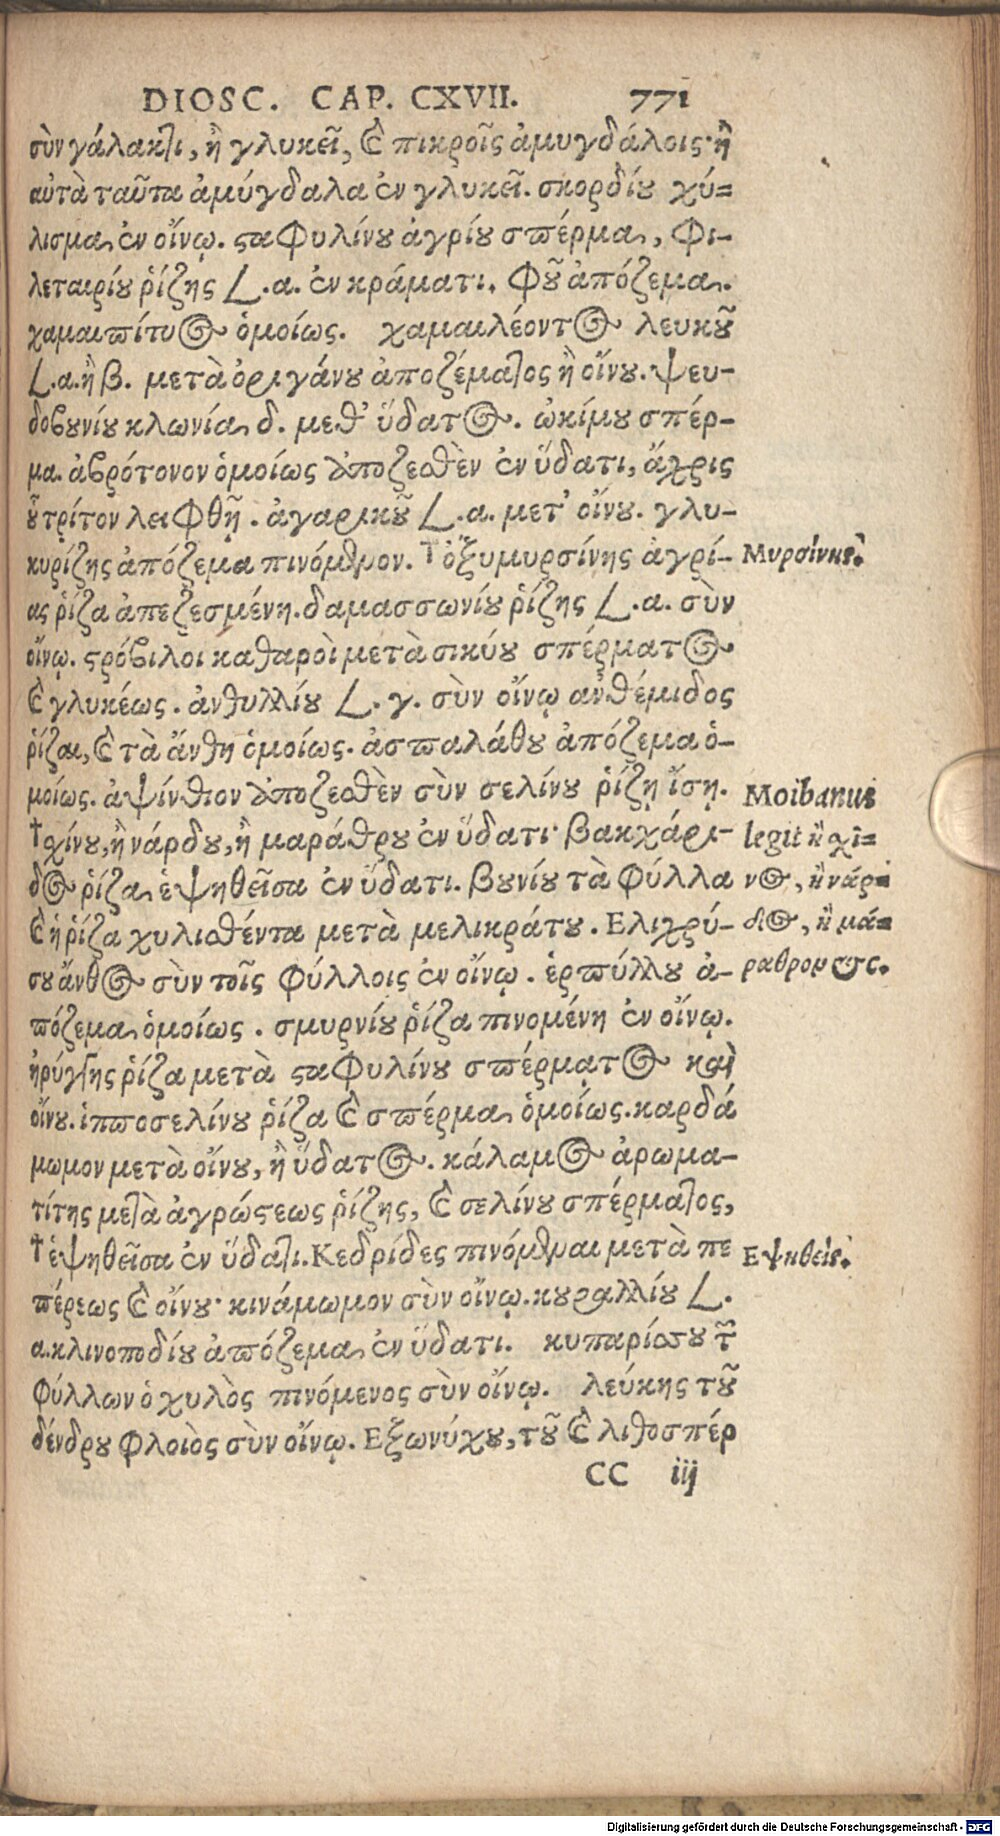 DIOSC. CAP. CXVII. 771
σὺν γάλακτι, ἢ γλυκεῖ, καὶ πικροῖς ἀμυγδάλοις· ἢ
αὐτὰ ταῦτα ἀμύγδαλα ἐν γλυκεῖ. σκορδίου χύ=
λισμα ἐν οἴνῳ. σταφυλίνου ἀγρίου σπέρμα, φι-
λεταιρίου ῥίζης 𐅻.α. ἐν κράματι. φοῦ ἀπόζεμα.
χαμαιπίτυος ὁμοίως. χαμαιλέοντος λευκοῦ
𐅻.α. ἢ β. μετὰ ὀριγάνου ἀποζέματος ἢ οἴνου. ψευ-
δοβουνίου κλωνία δ. μεθ' ὕδατος. ὠκίμου σπέρ-
μα. ἀβρότονον ὁμοίως ἀποζεσθὲν ἐν ὕδατι, ἄχρις
οὗ τρίτον λειφθῇ. ἀγαρικοῦ 𐅻.α. μετ' οἴνου. γλυ-
κυρίζης ἀπόζεμα πινόμενον. †ὀξυμυρσίνης ἀγρί-
ας ῥίζα ἀπεζεσμένη. δαμασσωνίου ῥίζης 𐅻.α. σὺν
οἴνῳ. στρόβιλοι καθαροὶ μετὰ σικύου σπέρματος
καὶ γλυκέως. ἀνθυλλίου 𐅻.γ. σὺν οἴνῳ ἀνθέμιδος
ῥίζαι, καὶ τὰ ἄνθη ὁμοίως. ἀσπαλάθου ἀπόζεμα ὁ-
μοίως. ἀψίνθιον ἀποζεσθὲν σὺν σελίνου ῥίζῃ ἴσῃ.
†σχίνου, ἢ νάρδου, ἢ μαράθρου ἐν ὕδατι· βακχάρι-
δος ῥίζα ἑψηθεῖσα ἐν ὕδατι. βουνίου τὰ φύλλα
καὶ ἡ ῥίζα χυλισθέντα μετὰ μελικράτου. Ελιχρύ-
σου ἄνθος σὺν τοῖς φύλλοις ἐν οἴνῳ. ἑρπύλλου ἀ-
πόζεμα ὁμοίως. σμυρνίου ῥίζα πινομένη ἐν οἴνῳ.
ἠρύγγης ῥίζα μετὰ σταφυλίνου σπέρματος καὶ
οἴνου. ἱπποσελίνου ῥίζα καὶ σπέρμα ὁμοίως. καρδά
μωμον μετὰ οἴνου, ἢ ὕδατος. κάλαμος ἀρωμα-
τίτης μετὰ ἀγρώστεως ῥίζης, καὶ σελίνου σπέρματος,
†ἑψηθεῖσα ἐν ὕδατι. Κεδρίδες πινόμεναι μετὰ πε
πέρεως καὶ οἴνου· κινάμωμον σὺν οἴνῳ. κοραλλίου 𐅻.
α. κλινοποδίου ἀπόζεμα ἐν ὕδατι. κυπαρίσσου τῶν
φύλλων ὁ χυλὸς πινόμενος σὺν οἴνῳ. λεύκης τοῦ
δένδρου φλοιὸς σὺν οἴνῳ. Εξωνύχου, τοῦ καὶ λιθοσπέρ
CC iij
Μυρσίνης.
Moibanus
legit ἢ σχῖ=
νος, ἢ νάρ=
δος, ἢ μά=
ραθρον
Εψηθείς.
Digitalisierung gefördert durch die Deutsche Forschungsgemeinschaft - DFG